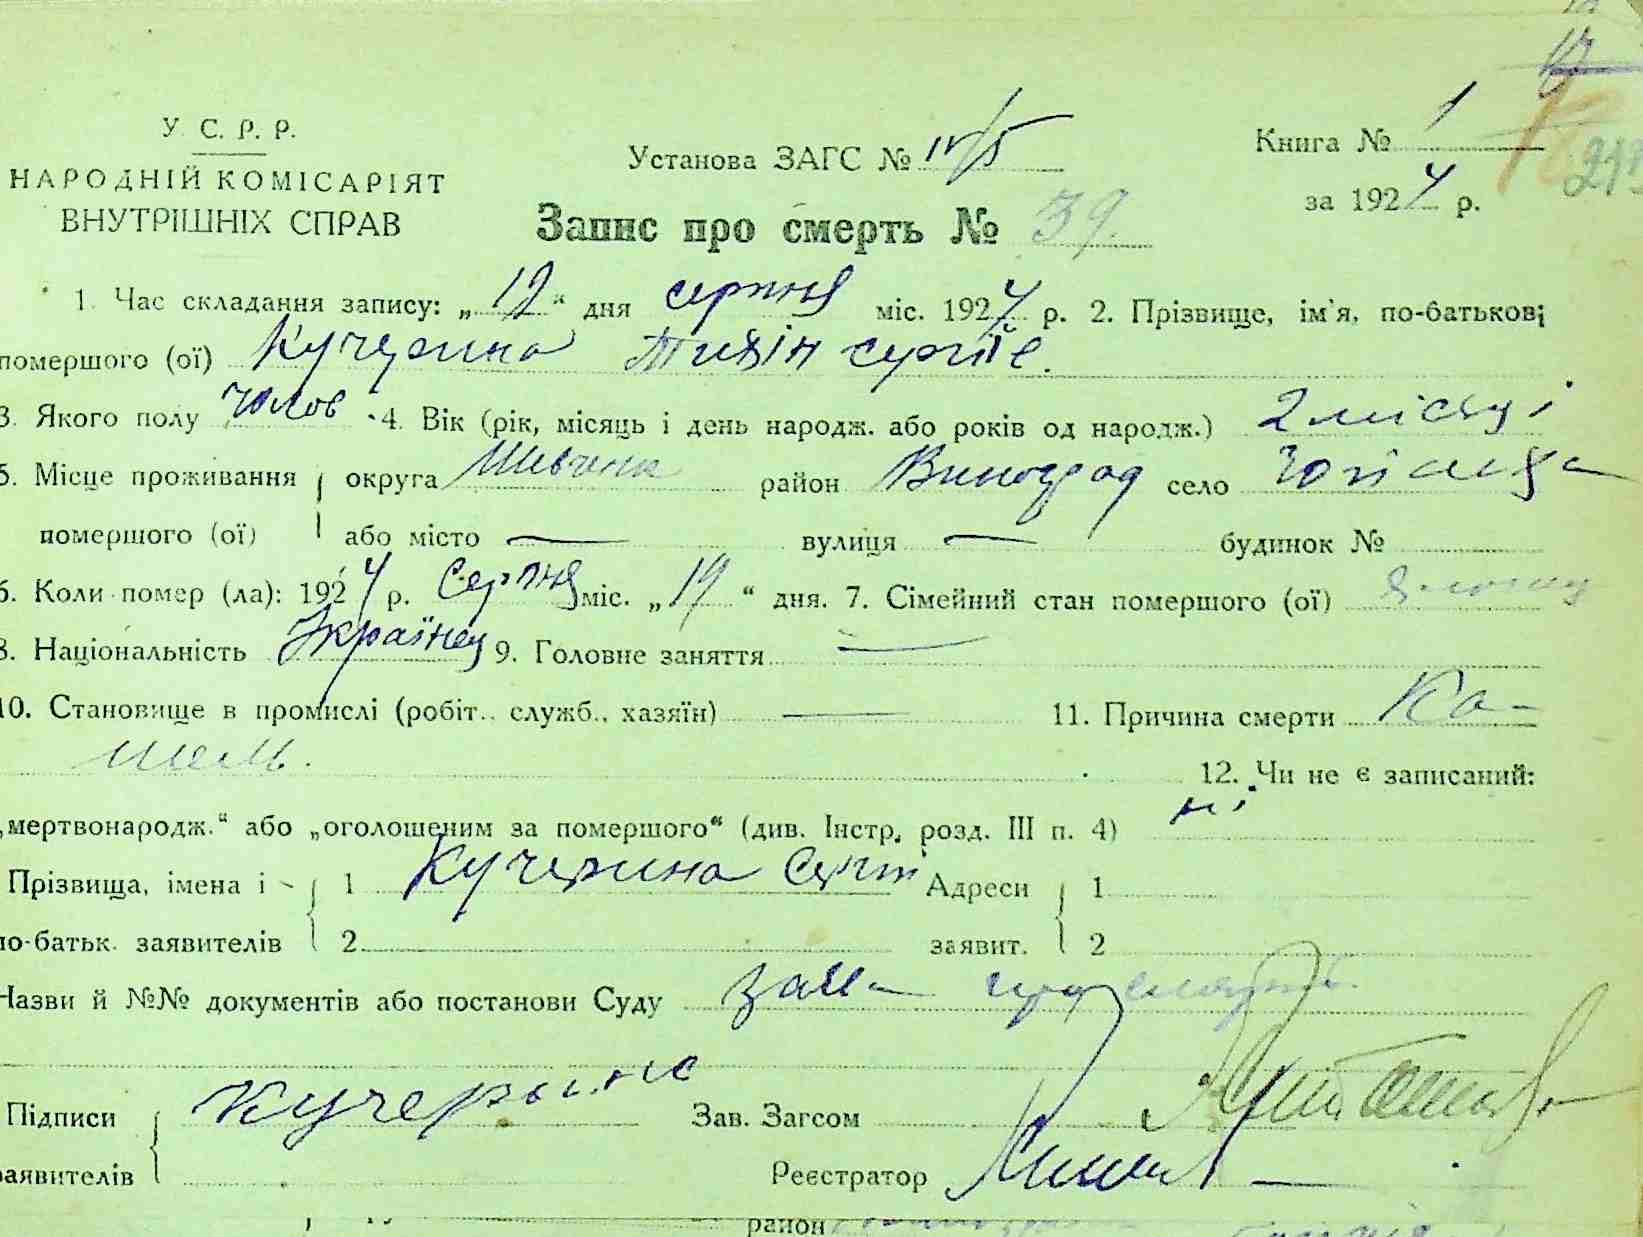 У. С. Р. Р.
НАРОДНІЙ КОМІСАРІЯТ
ВНУТРІШНІХ СПРАВ
Установа ЗАГС №
Книга № 1
за 1924 р.
Запис про смерть № 39
1. Час складання запису: „12“ дня серпня міс. 1924 р. 2. Прізвище, ім'я, по-батькові
помершого (ої) Кучерина Тихін Сергіє.
3. Якого полу чолов 4. Вік (рік, місяць і день народж. або років од народж.) 2 місяці
5. Місце проживання помершого (ої) округа Шевченк район Виноград село
або місто — вулиця — будинок №
6. Коли помер (ла): 1924 р. Серпня міс. „ “ дня. 7. Сімейний стан помершого (ої)
8. Національність Українец 9. Головне заняття —
10. Становище в промислі (робіт., служб., хазяїн) — 11. Причина смерти Ка-
шель.
12. Чи не є записаний:
„мертвонародж.“ або „оголошеним за помершого“ (див. Інстр. розд. III п. 4) ні
Прізвища, імена і по-батьк. заявителів 1 Кучерина Сергій Адреси заявит. 1
2 2
Назви й №№ документів або постанови Суду заява про смерть.
Підписи заявителів Кучерына Зав. Загсом
Реєстратор
район